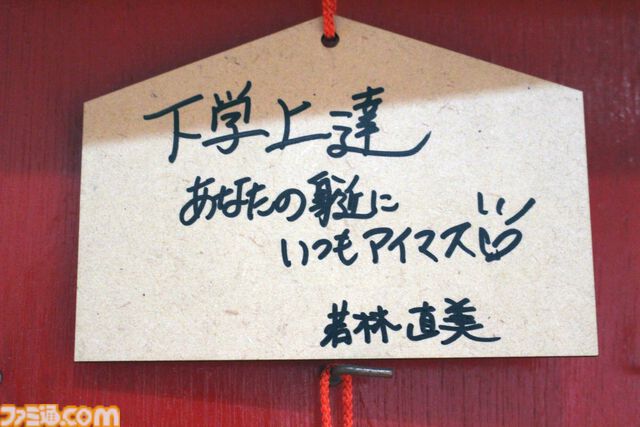 下学上達
あなたの身近に
いつもアイマス
若林直美
ファミ通.com